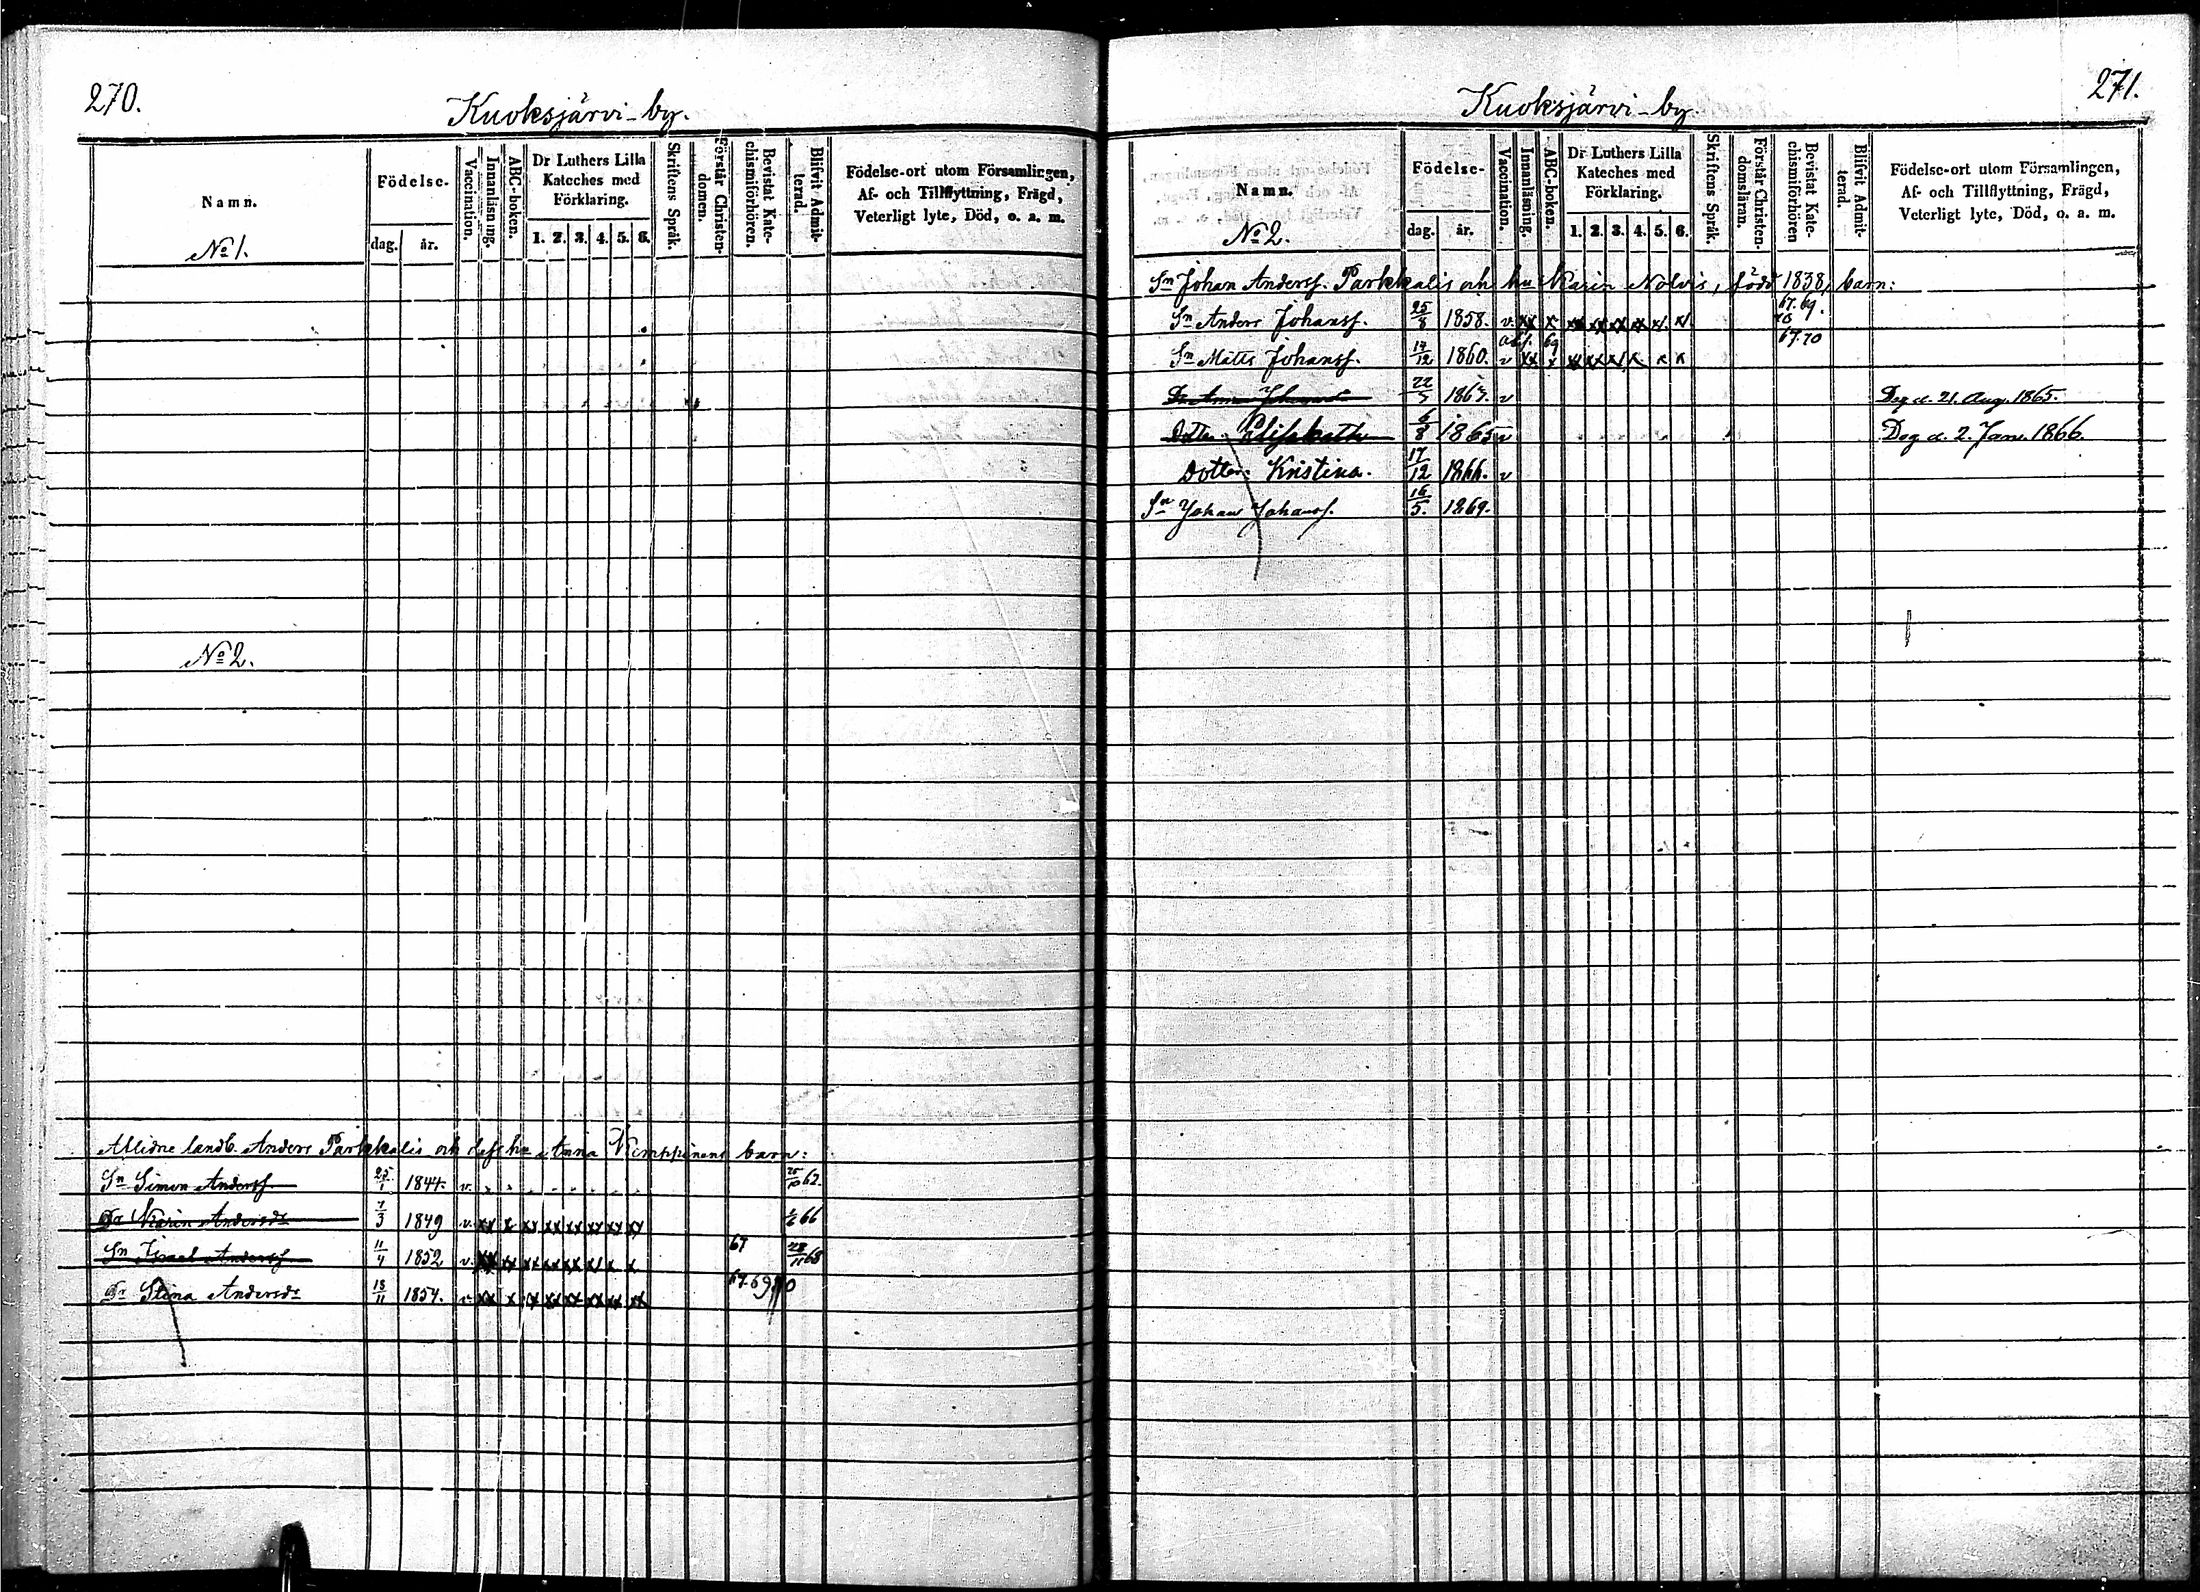 270.
Kuoksjärvi-by.
Namn.
Födelse-
dag. år.
Vaccination.
Innanläsning.
ABC-boken.
Dr Luthers Lilla
Kateches med
Förklaring.
1. 2. 3. 4. 5. 6.
Skriftens Språk.
Förstår Christen-
domen.
Bevistat Kate-
chismiförhören.
Blifvit Admit-
terad.
Födelse-ort utom Församlingen,
Af- och Tillflyttning, Frägd,
Veterligt lyte, Död, o. a. m.
No 1.
No 2.
Aflidne landb. Anders Parkkalis och dess hu Anna Kemppinens barn:
Sn Simon Anderss. 25/1 1844. v. 62.
Dr Karin Andersdr 7/3 1849 v. xx x xx xx xx xx xx xx 66
Sn Israel Anderss. 11/4 1852 v. xx xx xx xx xx x x x 67 28/11 68
Dr Stina Andersdr 13/11 1854. v xx x xx xx xx xx xx xx 67.69 70
271.
Kuoksjärvi-by.
Namn.
Födelse-
dag. år.
Vaccination.
Innanläsning.
ABC-boken.
Dr Luthers Lilla
Kateches med
Förklaring.
1. 2. 3. 4. 5. 6.
Skriftens Språk.
Förstår Christen-
domsläran.
Bevistat Kate-
chismiförhören
Blifvit Admit-
terad.
Födelse-ort utom Församlingen,
Af- och Tillflyttning, Frägd,
Veterligt lyte, Död, o. a. m.
No 2.
Sn Johan Anderss. Parkkalis och hu Karin Nolvis, född 1838, barn:
Sn Anders Johanss. 25/8 1858. v. xx x xx xx xx xx x x 67.69. 70
Sn Matts Johanss. 17/12 1860. v xx x xx x x x x x 67.70
Dr Anna 22/5 v Dog d. 21. Aug. 1865.
Dotter Elisabeth 6/8 1865 v Dog d. 2. Jan. 1866.
Dotter Kristina. 17/12 1866. v
Sn Johan Johanss. 16/5. 1869.